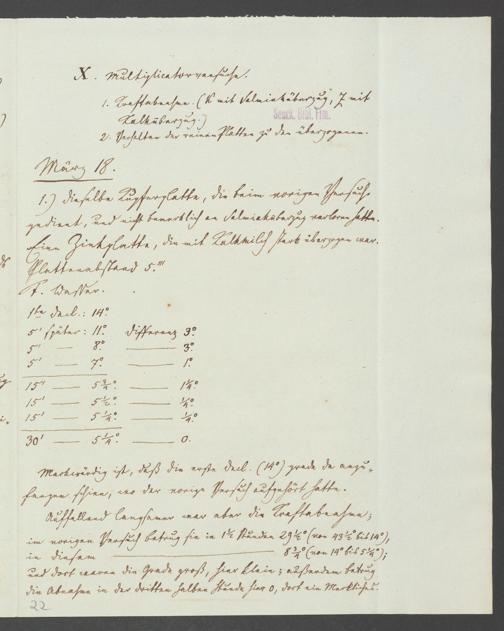 X. Multiplicatorversuche.
1. Kraftabnahme. (K mit Salmiaküberzug, Z mit
Kalküberzug.)
Senck. Bibl. Ffm.
2. Verhalten der reinen Platten zu den überzogenen.
März 18.
1.) Dieselbe Kupferplatte, die beim vorigen Versuch
gedient, und nichts bemerklich an Salmiaküberzug verloren hatte.
Eine Zinkplatte, die mit Kalkmilch stark überzogen war.
Plattenabstand 5.'''
F. Wasser.
1ste Decl.: 14°
5' später: 11° Differenz 3°
5' — 8° — 3°
5' — 7° — 1°
15' — 5¾° — 1¼°
15' — 5½° — ¼°
15' — 5¼° — ¼°
30' — 5¼° — 0.
Merkwürdig ist, daß die erste Decl. (14°) grade da anzu-
fangen schien, wo der vorige Versuch aufgehört hatte.
Auffallend langsamer war aber die Kraftabnahme;
im vorigen Versuch betrug sie in 1½ Stunden 29½° (von 43½ bis 14°),
in diesem — 8¾° (von 14° bis 5¼°);
und dort waren die Grade groß, hier klein; außerdem betrug
die Abnahme in der dritten halben Stunde hier 0, dort ein Merkliches.
22